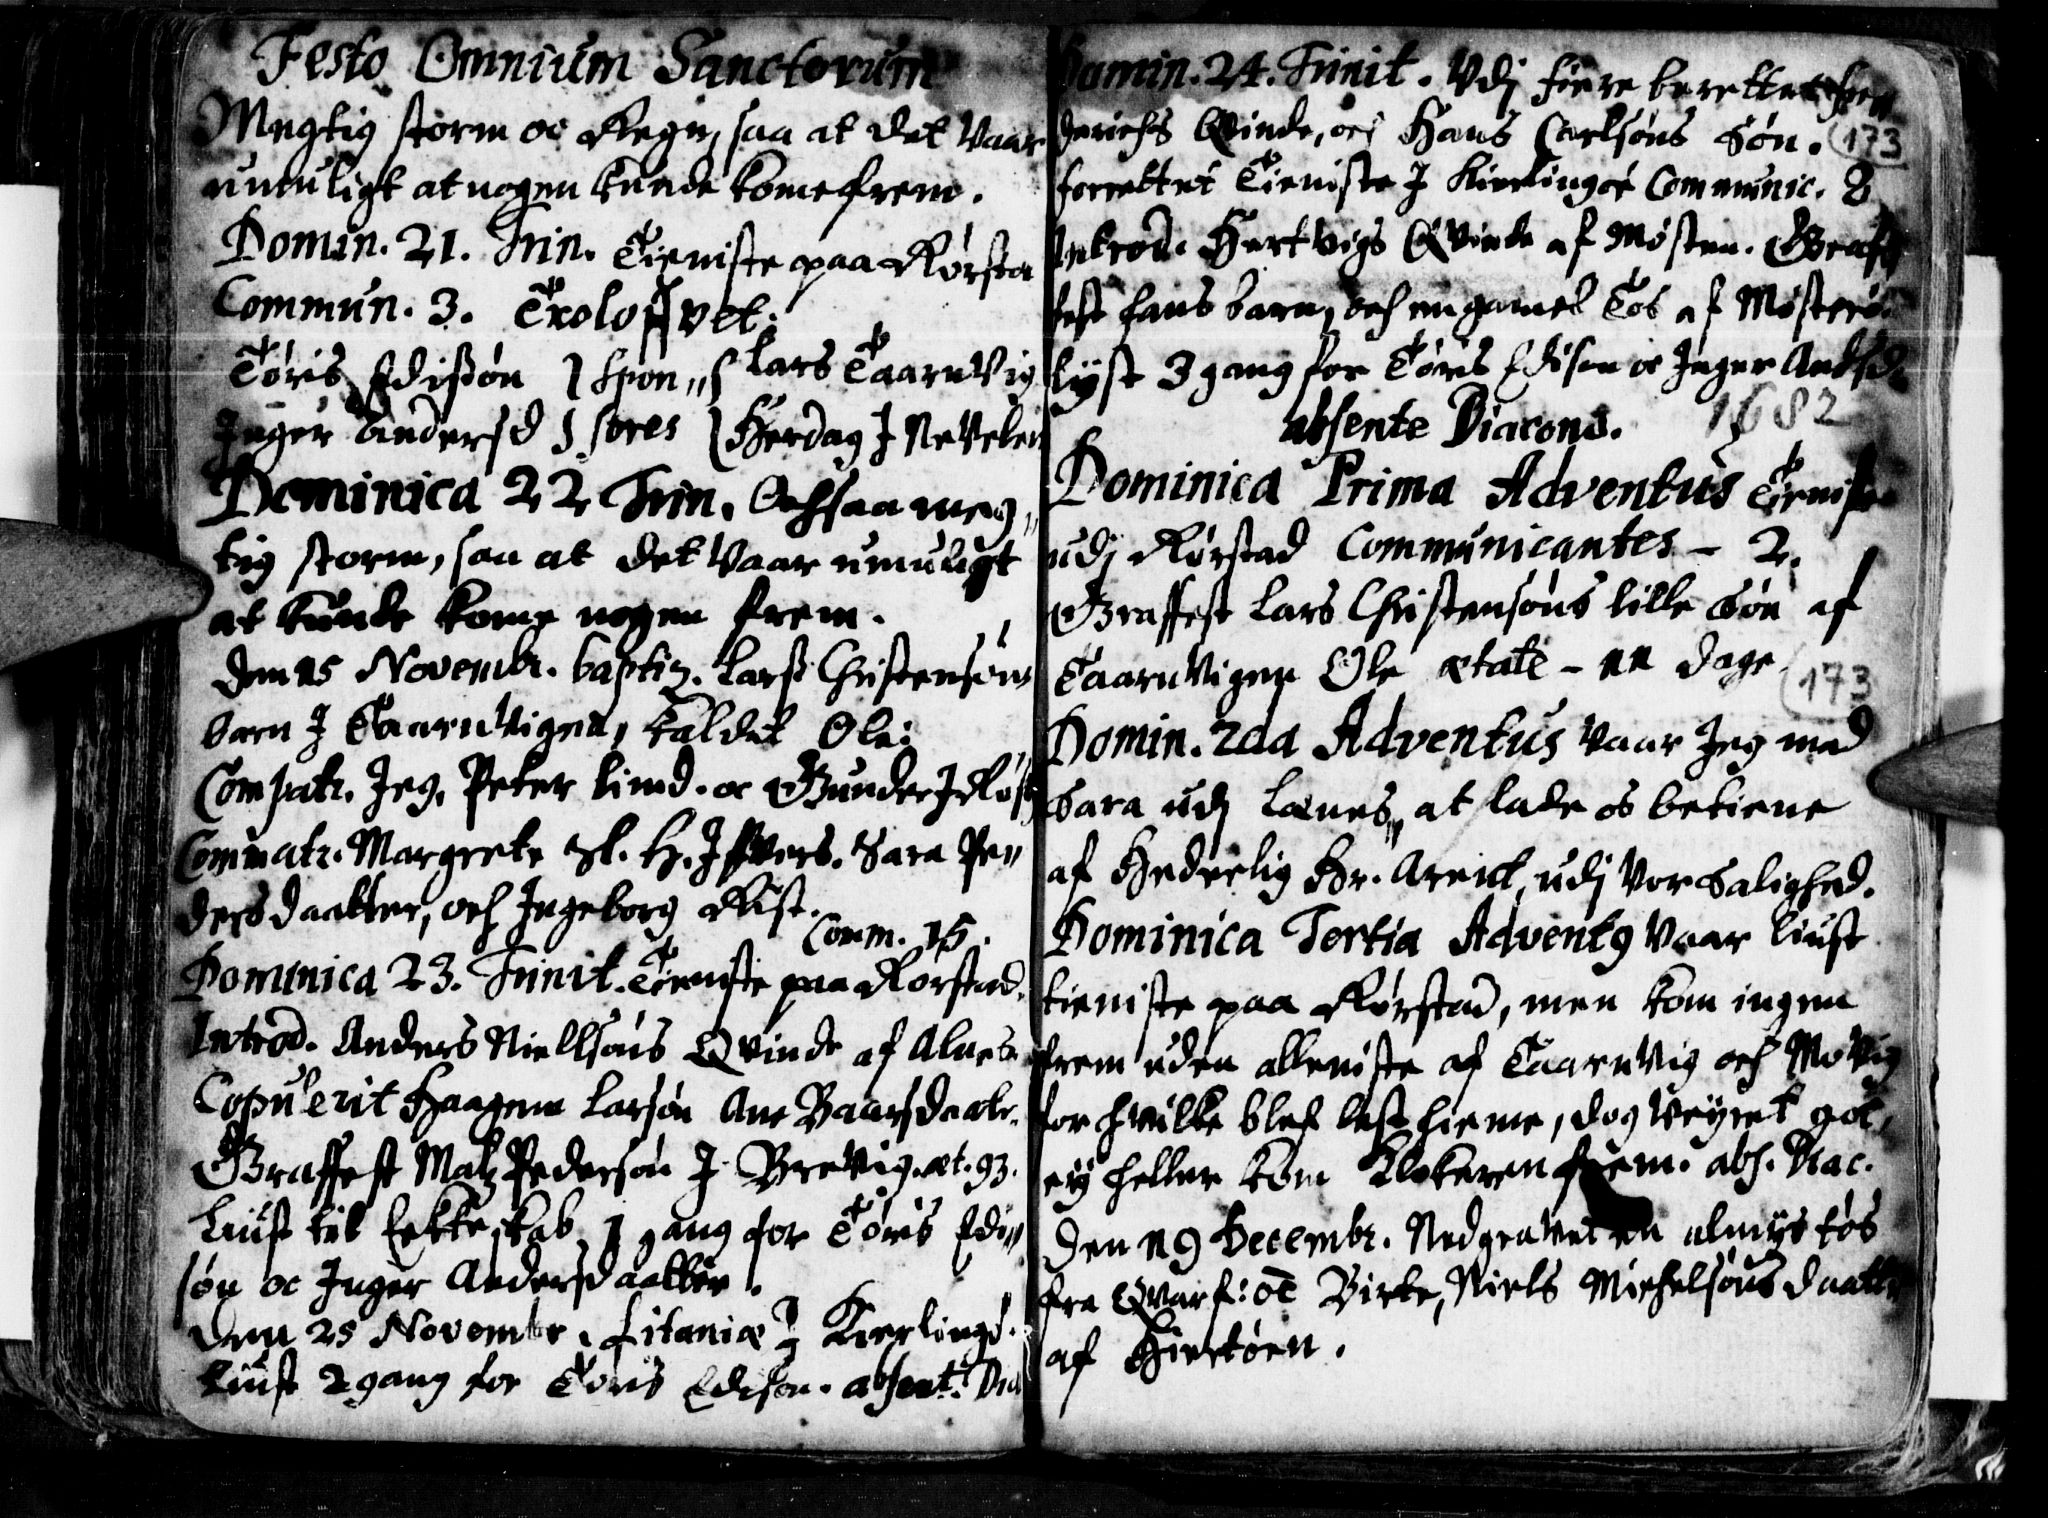 Festo Omnium Sanctorum
Megtig storm oc Regn, saa at det vaar
umuligt at nogen kunde kome frem.
Domin. 21. Trin. Tieniste paa Rørsta
Commun. 3. Trolofvet.
Tøris Edissøn } Spon„ { Lars Taarnvig
Inger Andersd } sores { Herdag J Nevelen
Dominica 22 Trin. Ochsaa meg„
tig storm, saa at det vaar umuligt
at kunde kome nogen frem.
Den 15 Novembr. baptiz. Lars Christensøns
barn J Taarnvigen, kaldet Ole:
Compatr. Jeg, Peter Lind. oc Gunder J Røst
Commatr. Margrete Sl. H. Ifvers. Sara Pe„
dersdaatter, och Ingeborg Rist.
Comm. 15.
Dominica 23. Trinit. Tieniste paa Rorstad.
Introd. Anders Niellsøns Qvinde af Alnes.
Copulerit Haagen Larsøn Ane Baarsdaatr.
Graffest Matz Pedersøn J Brevig. æt. 93.
Liust til Ecteskab 1 gang for Tøris Edi„
søn oc Inger Andersdaatter.
Den 25 Novembr. Litaniæ J Kierlingø.
Liust 2 gang for Tøris Edisøn. absent. Dia
Domin. 24. Trinit. Vdj fiere berettet
derichs Qvinde, och Hans Carlsøns Søn. 173
forrettet Tieniste J Kierlingøe Communic. 8
Introd. Hertvigs Qvinde af Møsten. Graf
fest hans barn, och en gamel Tøs af Møsterø
lyst 3 gang for Tøris Edisen oc Inger Andsd
absente Diacono. 1682
Dominica Prima Adventus Tieniste
udj Rørstad Communicantes - 2.
Graffest Lars Christensøns lille Søn af
Taarnvigen Ole ætate - 11 dage 173
Domin. 2da Adventus vaar Jeg med
Sara udj Lænes, at lade os betiene
af Hederlig Hr. Arent, udj vor Salighed.
Dominica Tertia Advent9 vaar liust
tieniste paa Rørstad, men kom ingen
frem uden alleniste af Taarnvig och Movig
for hvilke blef læst hieme, dog veyret got,
ey heller kom Klokeren frem. abs. Diac.
Den 19 Decembr. Nedgravet en almys tøs
fra Qvarf: oc Virke, Niels Michelsøns daatter
af Hiertøen.